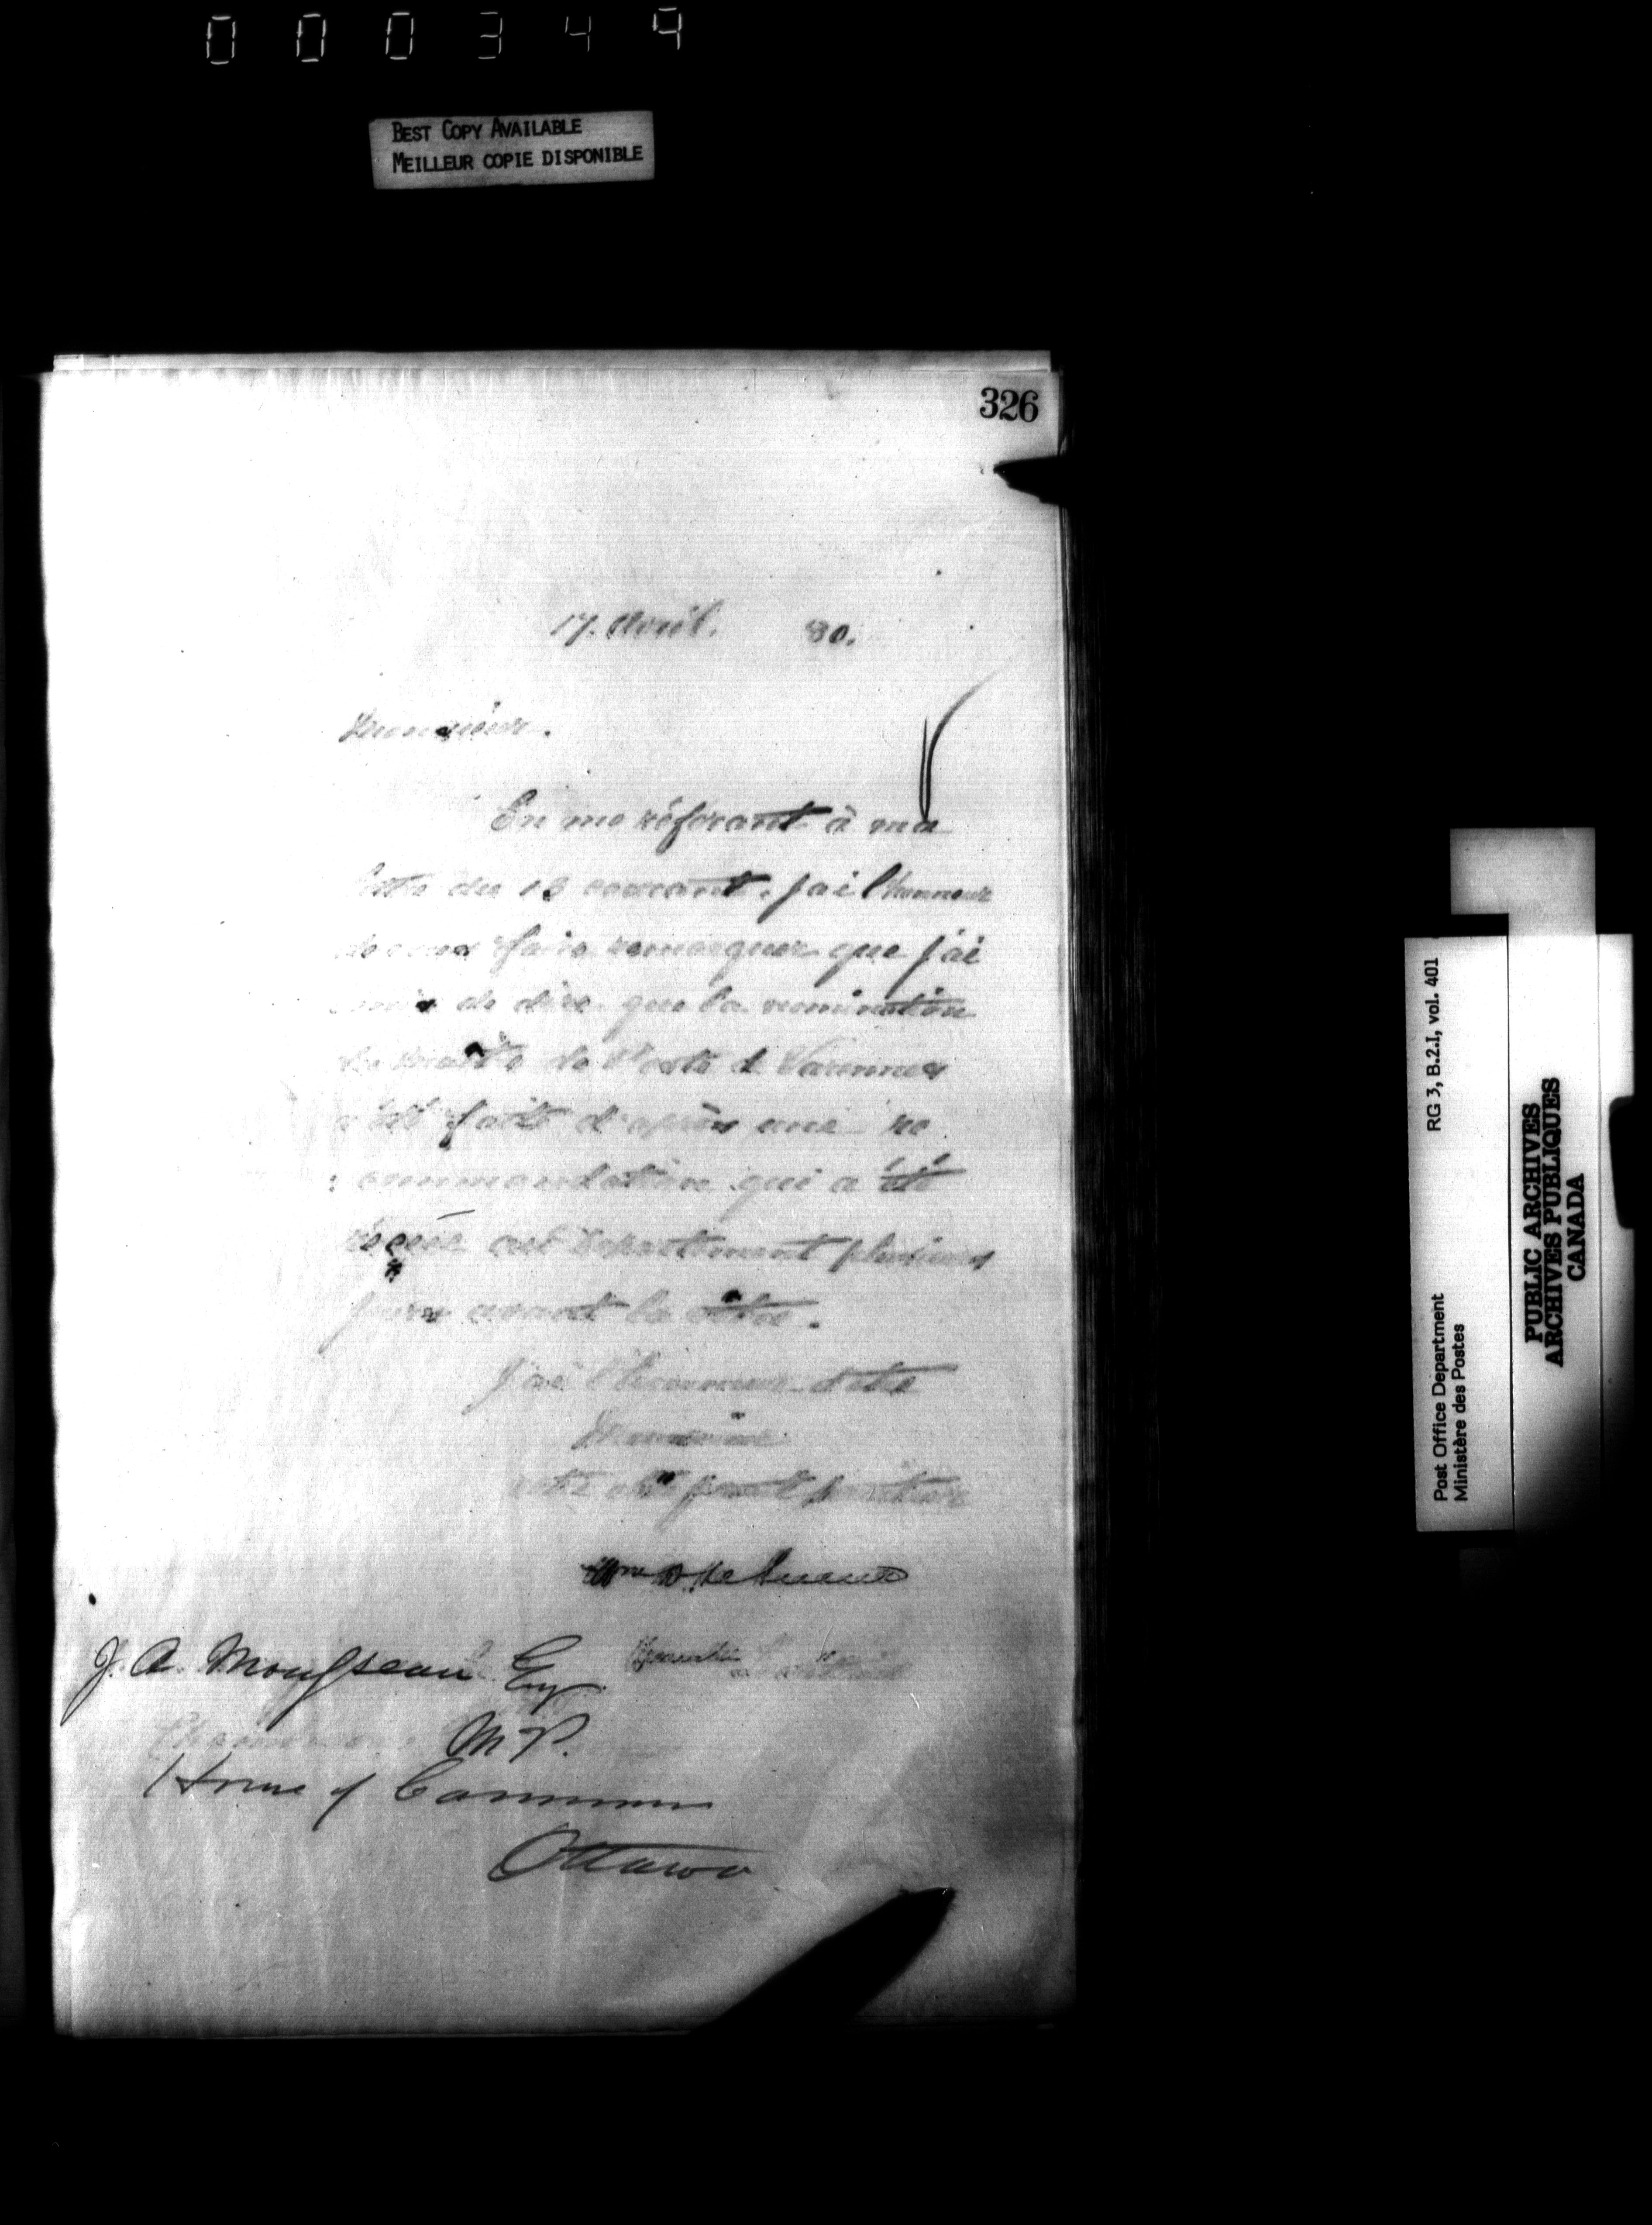 000344
BEST COPY AVAILABLE
MEILLEUR COPIE DISPONIBLE
326
17. Avril. 80.
Monsieur.
En me référant à ma
lettre du 13 courant. J'ai l'honneur
de vous faire remarquer que j'ai
omis de dire que la nomination
du Maitre de Poste de Varennes
a été faite d'après une re
commandation qui a été
reçue au Departement plusieurs
jours avant la vôtre.
J'ai l'honneur d'etre
Monsieur
votre obt
J. A. Mousseau Esq
M.P.
House of Commons
Ottawa
RG 3, B.2.I, vol. 401
Post Office Department
Ministère des Postes
PUBLIC ARCHIVES
ARCHIVES PUBLIQUES
CANADA